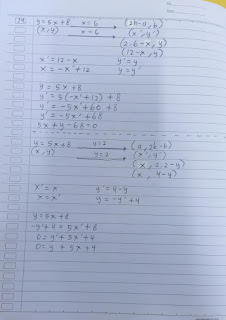 24. y = 5x + 8 x = 6 (2h-a, b)
(x, y) x = 6 (x', y')
(2.6-x, y)
(12-x, y)
x' = 12 - x y' = y
x = -x' + 12 y = y'
y = 5x + 8
y' = 5(-x' + 12) + 8
y' = -5x' + 60 + 8
y' = -5x' + 68
5x + y - 68 = 0
y = 5x + 8 y = 2 (a, 2k-b)
(x, y) y = 2 (x', y')
(x, 2.2-y)
(x, 4-y)
x' = x y' = 4-y
x = x' y = -y' + 4
y = 5x + 8
-y' + 4 = 5x' + 8
0 = y' + 5x' + 4
0 = y + 5x + 4